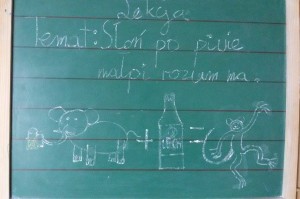 Lekcja
Temat: Słoń po piwie
małpi rozum ma.